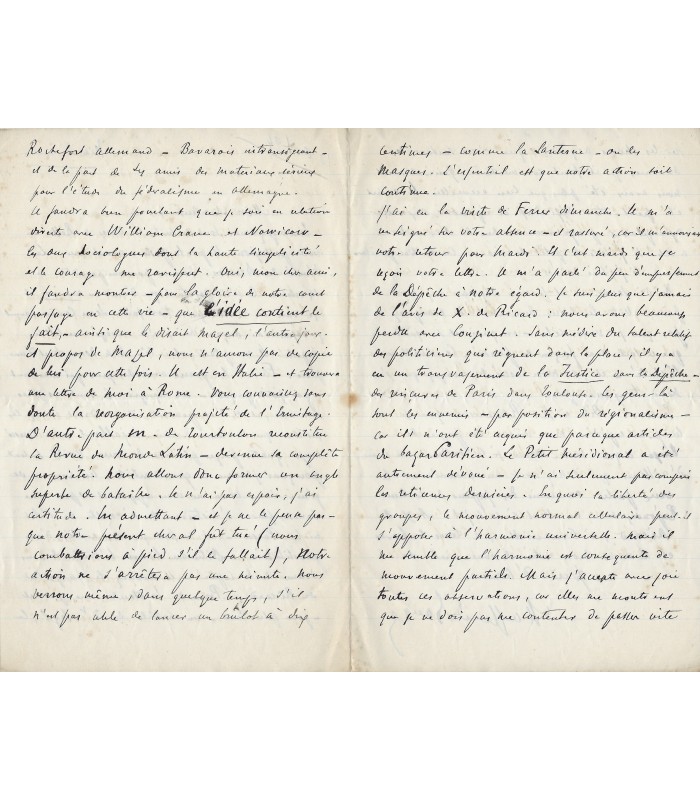 Rochefort allemand – Bavarois intransigeant –
et de la part de ses amis des matériaux sérieux
pour l'étude du fédéralisme en Allemagne.
Il faudra bien pourtant que je sois en relation
directe avec William Crane et Novicow –
les deux sociologues dont la haute simplicité
et le courage me ravissent. Oui, mon cher ami,
il faudra montrer – pour la gloire de notre court
passage en cette vie – que l'idée contient le
fait – ainsi que le disait Mazel, l'autre jour.
A propos de Mazel, nous n'aurons pas de copie
de lui pour cette fois. Il est en Italie – et trouvera
une lettre de moi à Rome. Vous connaissez sans
doute la réorganisation projetée de l'Ermitage.
D'autre part M. de Tourtoulon reconstitue
la Revue du Monde Latin – devenue sa complète
propriété. Nous allons donc former un angle
superbe de bataille. Je n'ai pas espoir, j'ai
certitude. En admettant – et je ne le pense pas –
que notre présent cheval fût tué (nous
combattrions à pied s'il le fallait), notre
action ne s'arrêtera pas une minute. Nous
verrons même, dans quelque temps, s'il
n'est pas utile de lancer un brûlot à dix
centimes – comme la Lanterne – ou les
Masques. L'essentiel est que notre action soit
continue.
J'ai eu la visite de Ferrer dimanche. Il m'a
renseigné sur votre absence – et rassuré, car il m'annonçait
votre retour pour mardi. Et c'est mardi que je
reçois votre lettre. Il m'a parlé du peu d'empressement
de la Dépêche à notre égard. Je suis plus que jamais
de l'avis de X. de Ricard : nous avons beaucoup
perdu avec Coupinet. Sans médire du talent relatif
des politiciens qui règnent dans la place, il y a
eu un transvasement de la Justice dans la Dépêche –
des rinçures de Paris dans Toulouse. Les gens là
sont les ennemis – par position du régionalisme –
car ils n'ont été acquis que parce que articles
du bazar Parisien. Le Petit Méridional a été
autrement dévoué – Je n'ai seulement pas compris
les réticences dernières. En quoi la liberté des
groupes, le mouvement normal cellulaire peut-il
s'opposer à l'harmonie universelle. Mais il
me semble que l'harmonie est conséquente de
mouvements partiels. Mais j'accepte avec joie
toutes ces observations, car elles me montrent
que je ne dois pas me contenter de passer vite